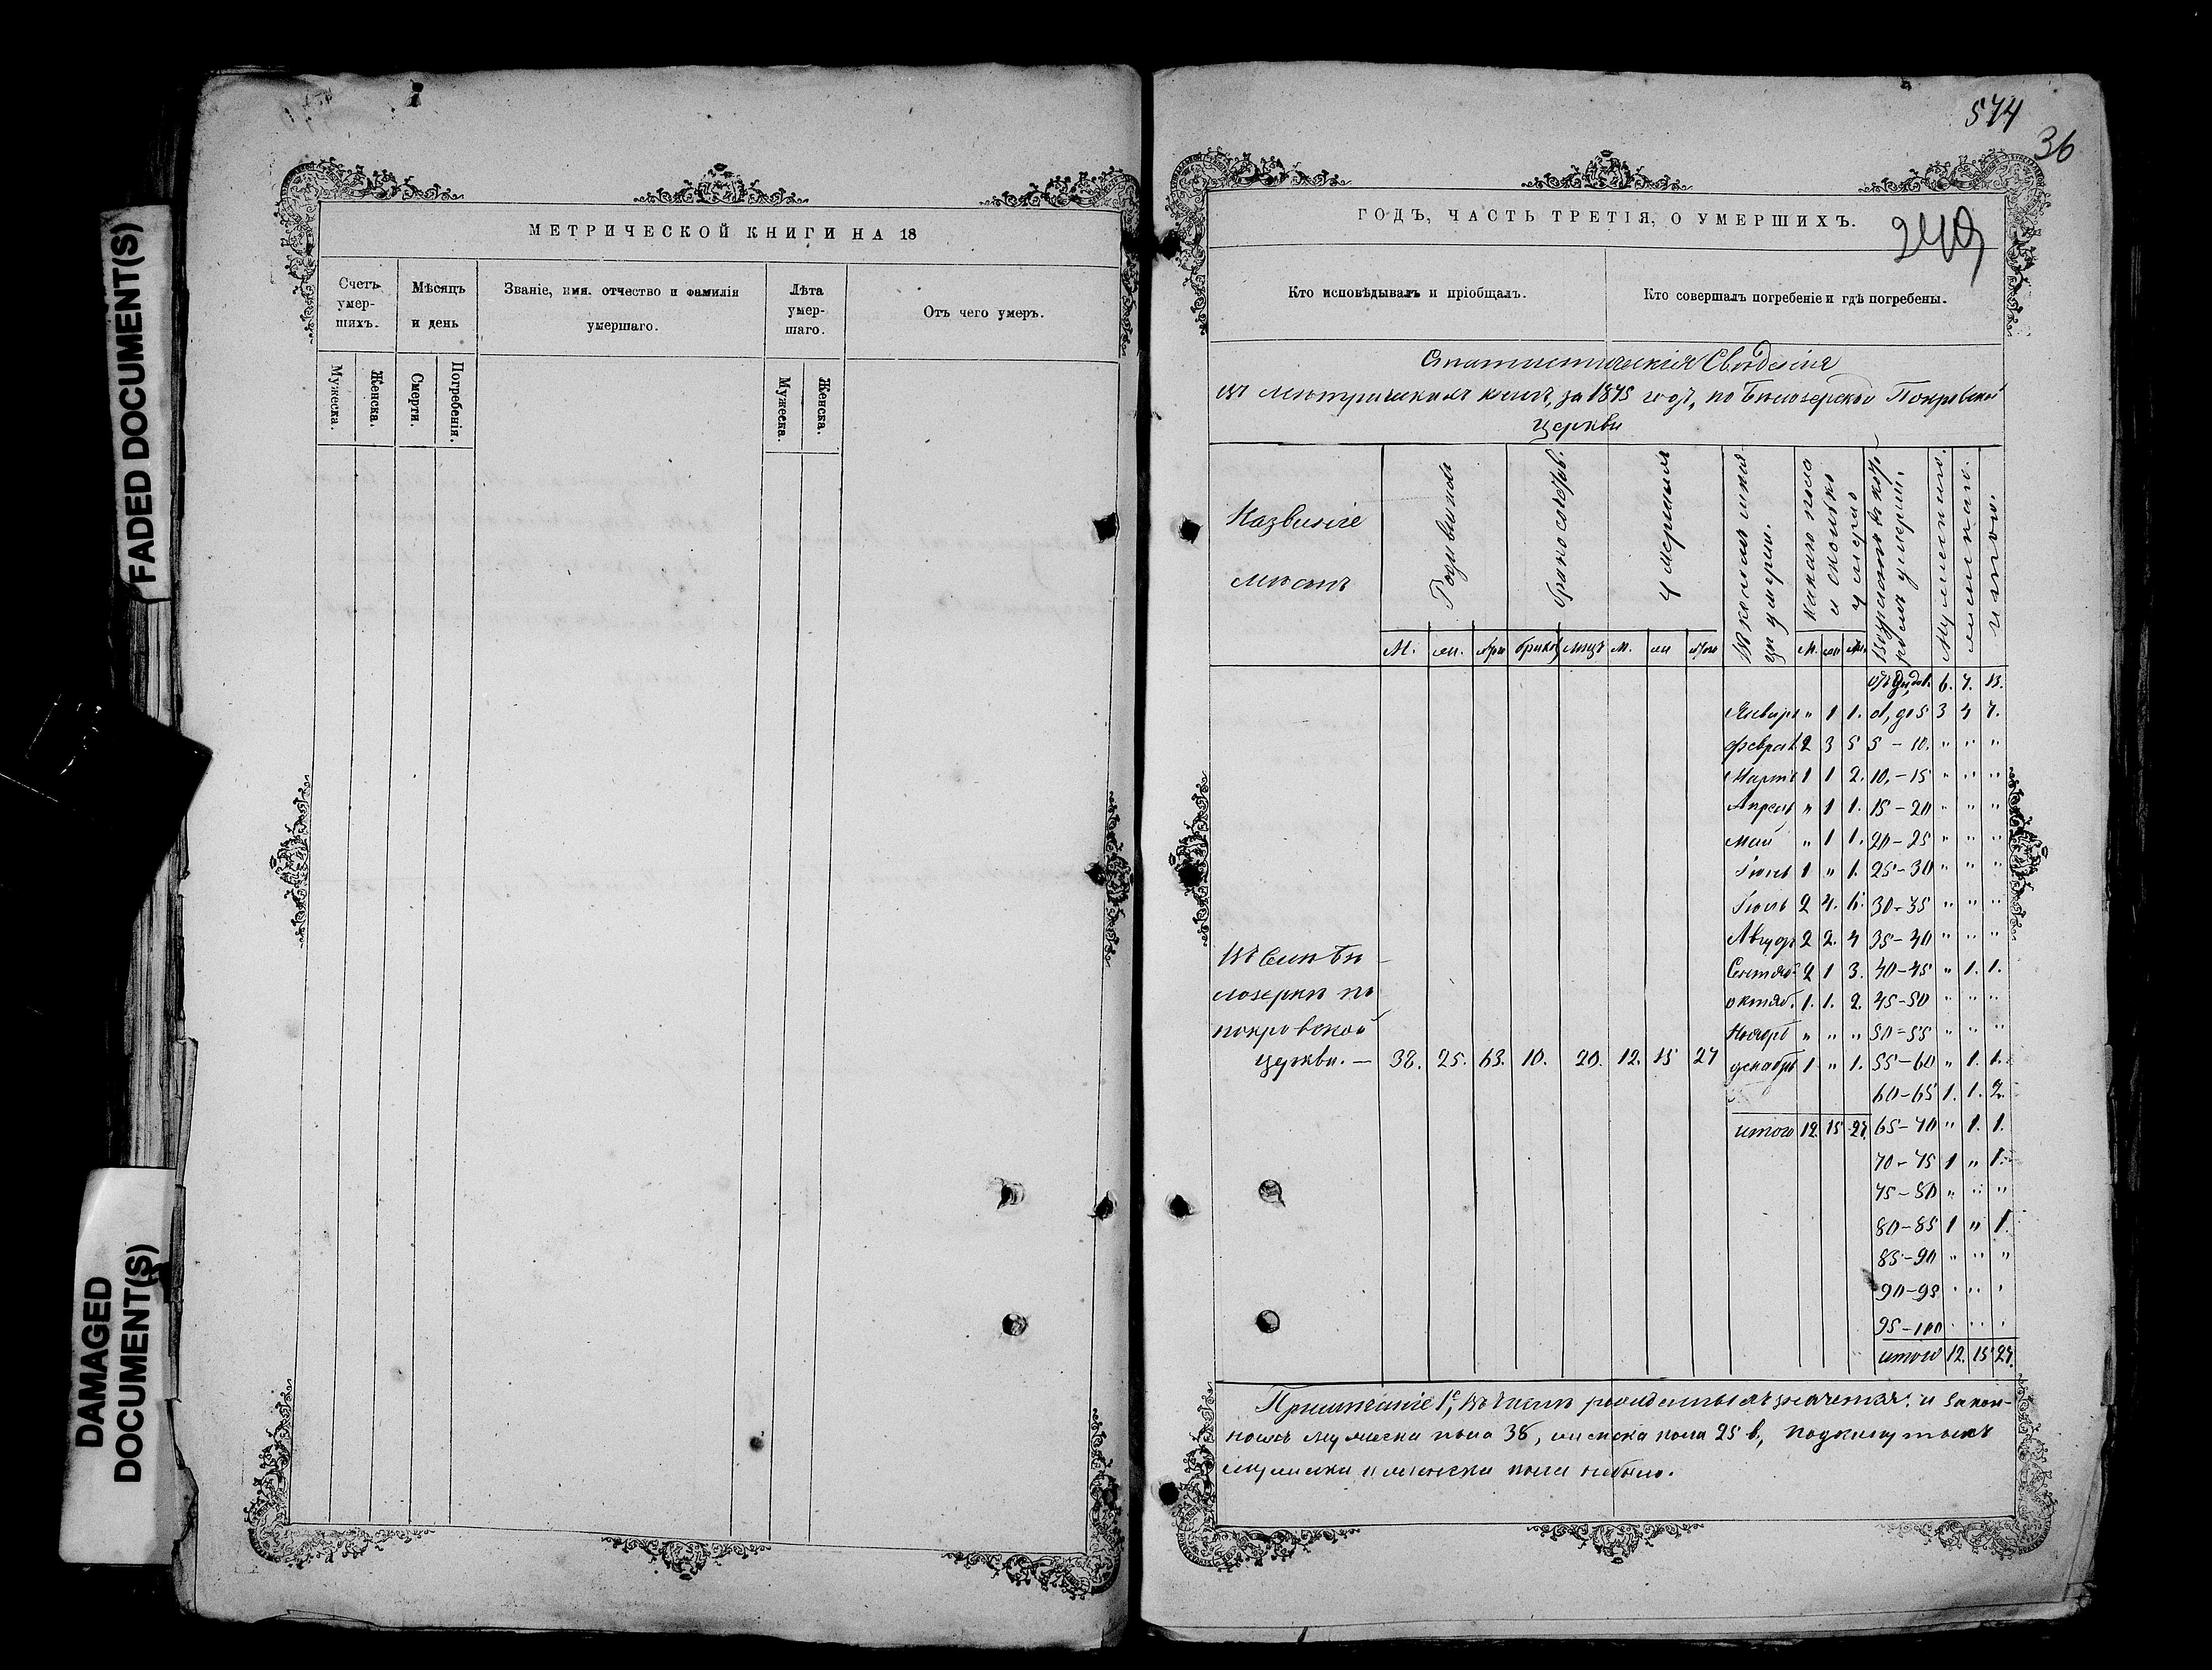 FADED DOCUMENT(S)
DAMAGED
DOCUMENT(S)
МЕТРИЧЕСКОЙ КНИГИ НА 18
Счетъ
умер-
шихъ.
Мѣсяцъ
и день
Званіе, имя. отчество и фамилія
умершаго.
Лѣта
умер-
шаго.
Отъ чего умеръ.
Мужеска.
Женска.
Смерти.
Погребенія.
Мужеска.
Женска.
574
36
ГОДЪ, ЧАСТЬ ТРЕТІЯ, О УМЕРШИХЪ.
249
Кто исповѣдывалъ и пріобщалъ.
Кто совершалъ погребеніе и гдѣ погребены.
Статистическія Свѣдѣнія
въ метрическихъ книгъ, за 1875 годъ, по Бѣлозерской Покровской
Церкви
Названіе
мѣстъ
М. жен. бракоз лицъ м. же М.
отъ 6. 7. 13.
Январь " 1 1. д, до 5 3 4 7.
Феврал 2 3 5 5 - 10. " " "
Мартъ 1 1 2. 10. - 15 " " "
Апрель " 1 1. 15 - 20 " " "
май " 1 1. 20 - 25 " " "
Іюнь 1 " 1. 25 - 30 " " "
Іюль 2 4. 6. 30 - 35 " " "
Август 2 2. 4 35 - 40 " " "
Сентяб 2 1 3. 40 - 45 " 1. 1.
октяб. 1. 1. 2. 45 - 50 " " "
Ноябрь " " " 50 - 55 " " "
Въ селѣ Бѣ-
лозеркѣ по
покровской
церкви. — 38. 25. 63. 10. 20. 12. 15 27 декабрь 1 " 1. 55 - 60 " 1. 1.
60 - 65 1. 1. 2.
итого 12. 15. 27. 65 - 70 " 1. 1.
70 - 75 1 " 1.
75 - 80 " " "
80 - 85 1 " 1.
85 - 90 " " "
90 - 95 " " "
95 - 100 " " "
итого 12. 15 27.
Примѣчаніе 1е, Въ числѣ рожденныхъ значатся: и закон-
ныхъ мужеска пола 38, женска пола 25 в, подкинутыхъ
мужеска и женска пола небыло.